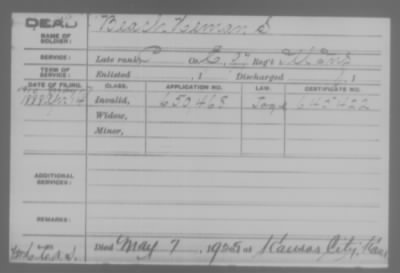 DEAD
NAME OF SOLDIER: Beach, Herman S
SERVICE: Late rank, Co. E, 27 Reg't
TERM OF SERVICE: Enlisted , 1 Discharged , 1
DATE OF FILING. CLASS. APPLICATION NO. LAW. CERTIFICATE NO.
1888 Invalid, 650,468 645422
Widow,
Minor,
ADDITIONAL SERVICES:
REMARKS:
Died May 7, 1925 at Kansas City, Kans